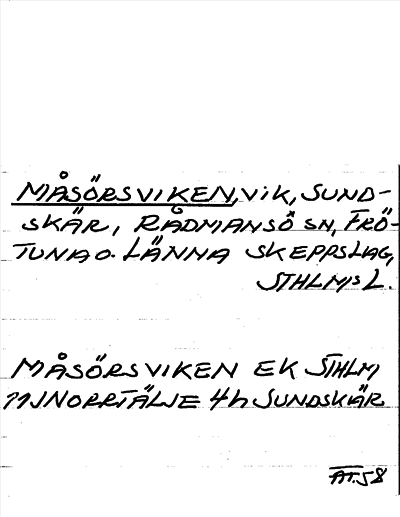 MÅSÖRSVIKEN, VIK, SUND-
SKÄR, RÅDMANSÖ SN, FRÖ-
TUNA O. LÄNNA SKEPPSLAG,
STHLMS L.
MÅSÖRSVIKEN EK STHLM
11J NORRTÄLJE 4h SUNDSKÄR
AT. 58